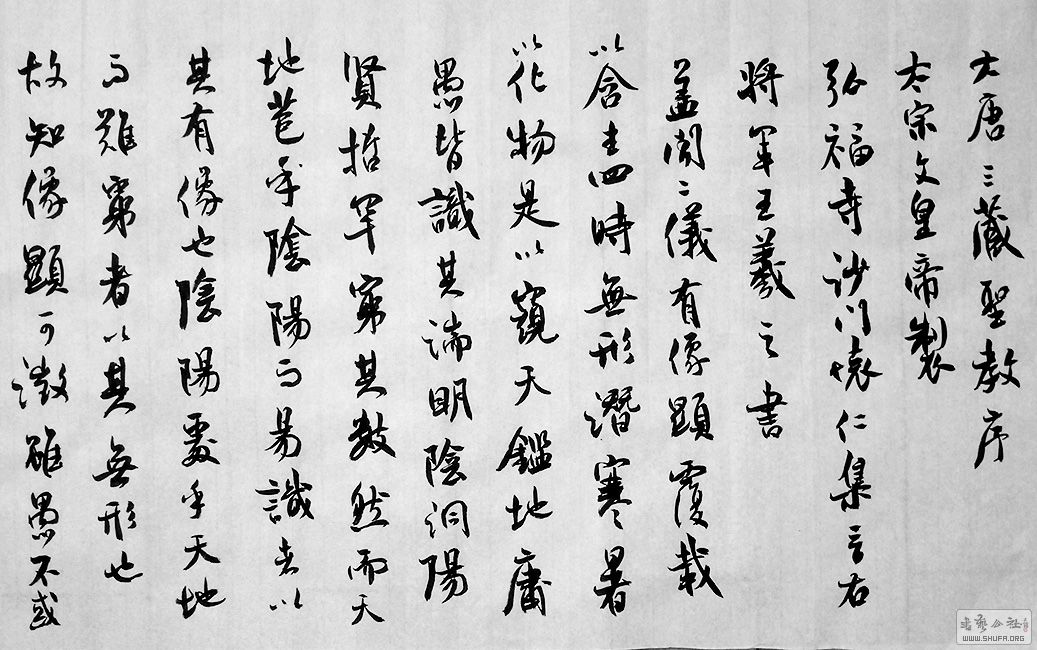 大唐三藏聖教序
太宗文皇帝製
弘福寺沙門懷仁集晉右
將軍王羲之書
蓋聞二儀有像顯覆載
以含生四時無形潛寒暑
以化物是以窺天鑑地庸
愚皆識其端明陰洞陽
賢哲罕窮其數然而天
地苞乎陰陽而易識者以
其有像也陰陽處乎天地
而難窮者以其無形也
故知像顯可徵雖愚不惑
WWW.SHUFA.ORG